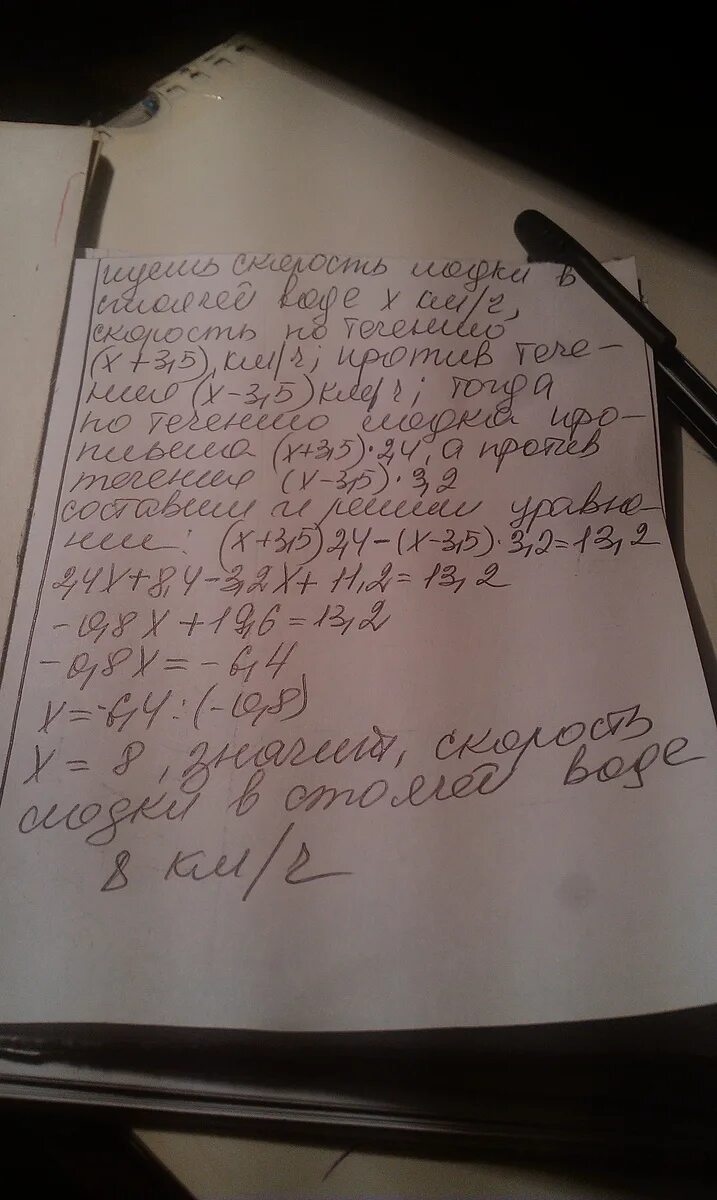 пусть скорость лодки в
стоячей воде х км/ч,
скорость по течению
(х+3,5) км/ч; против тече-
ния (х-3,5) км/ч; тогда
по течению лодка про-
плыла (х+3,5)·2,4, а против
течения (х-3,5)·3,2
составим и решим уравне-
ние: (х+3,5)2,4-(х-3,5)·3,2=13,2
2,4х+8,4-3,2х+11,2=13,2
-0,8х+19,6=13,2
-0,8х=-6,4
х=-6,4:(-0,8)
х=8, значит, скорость
лодки в стоячей воде
8 км/ч